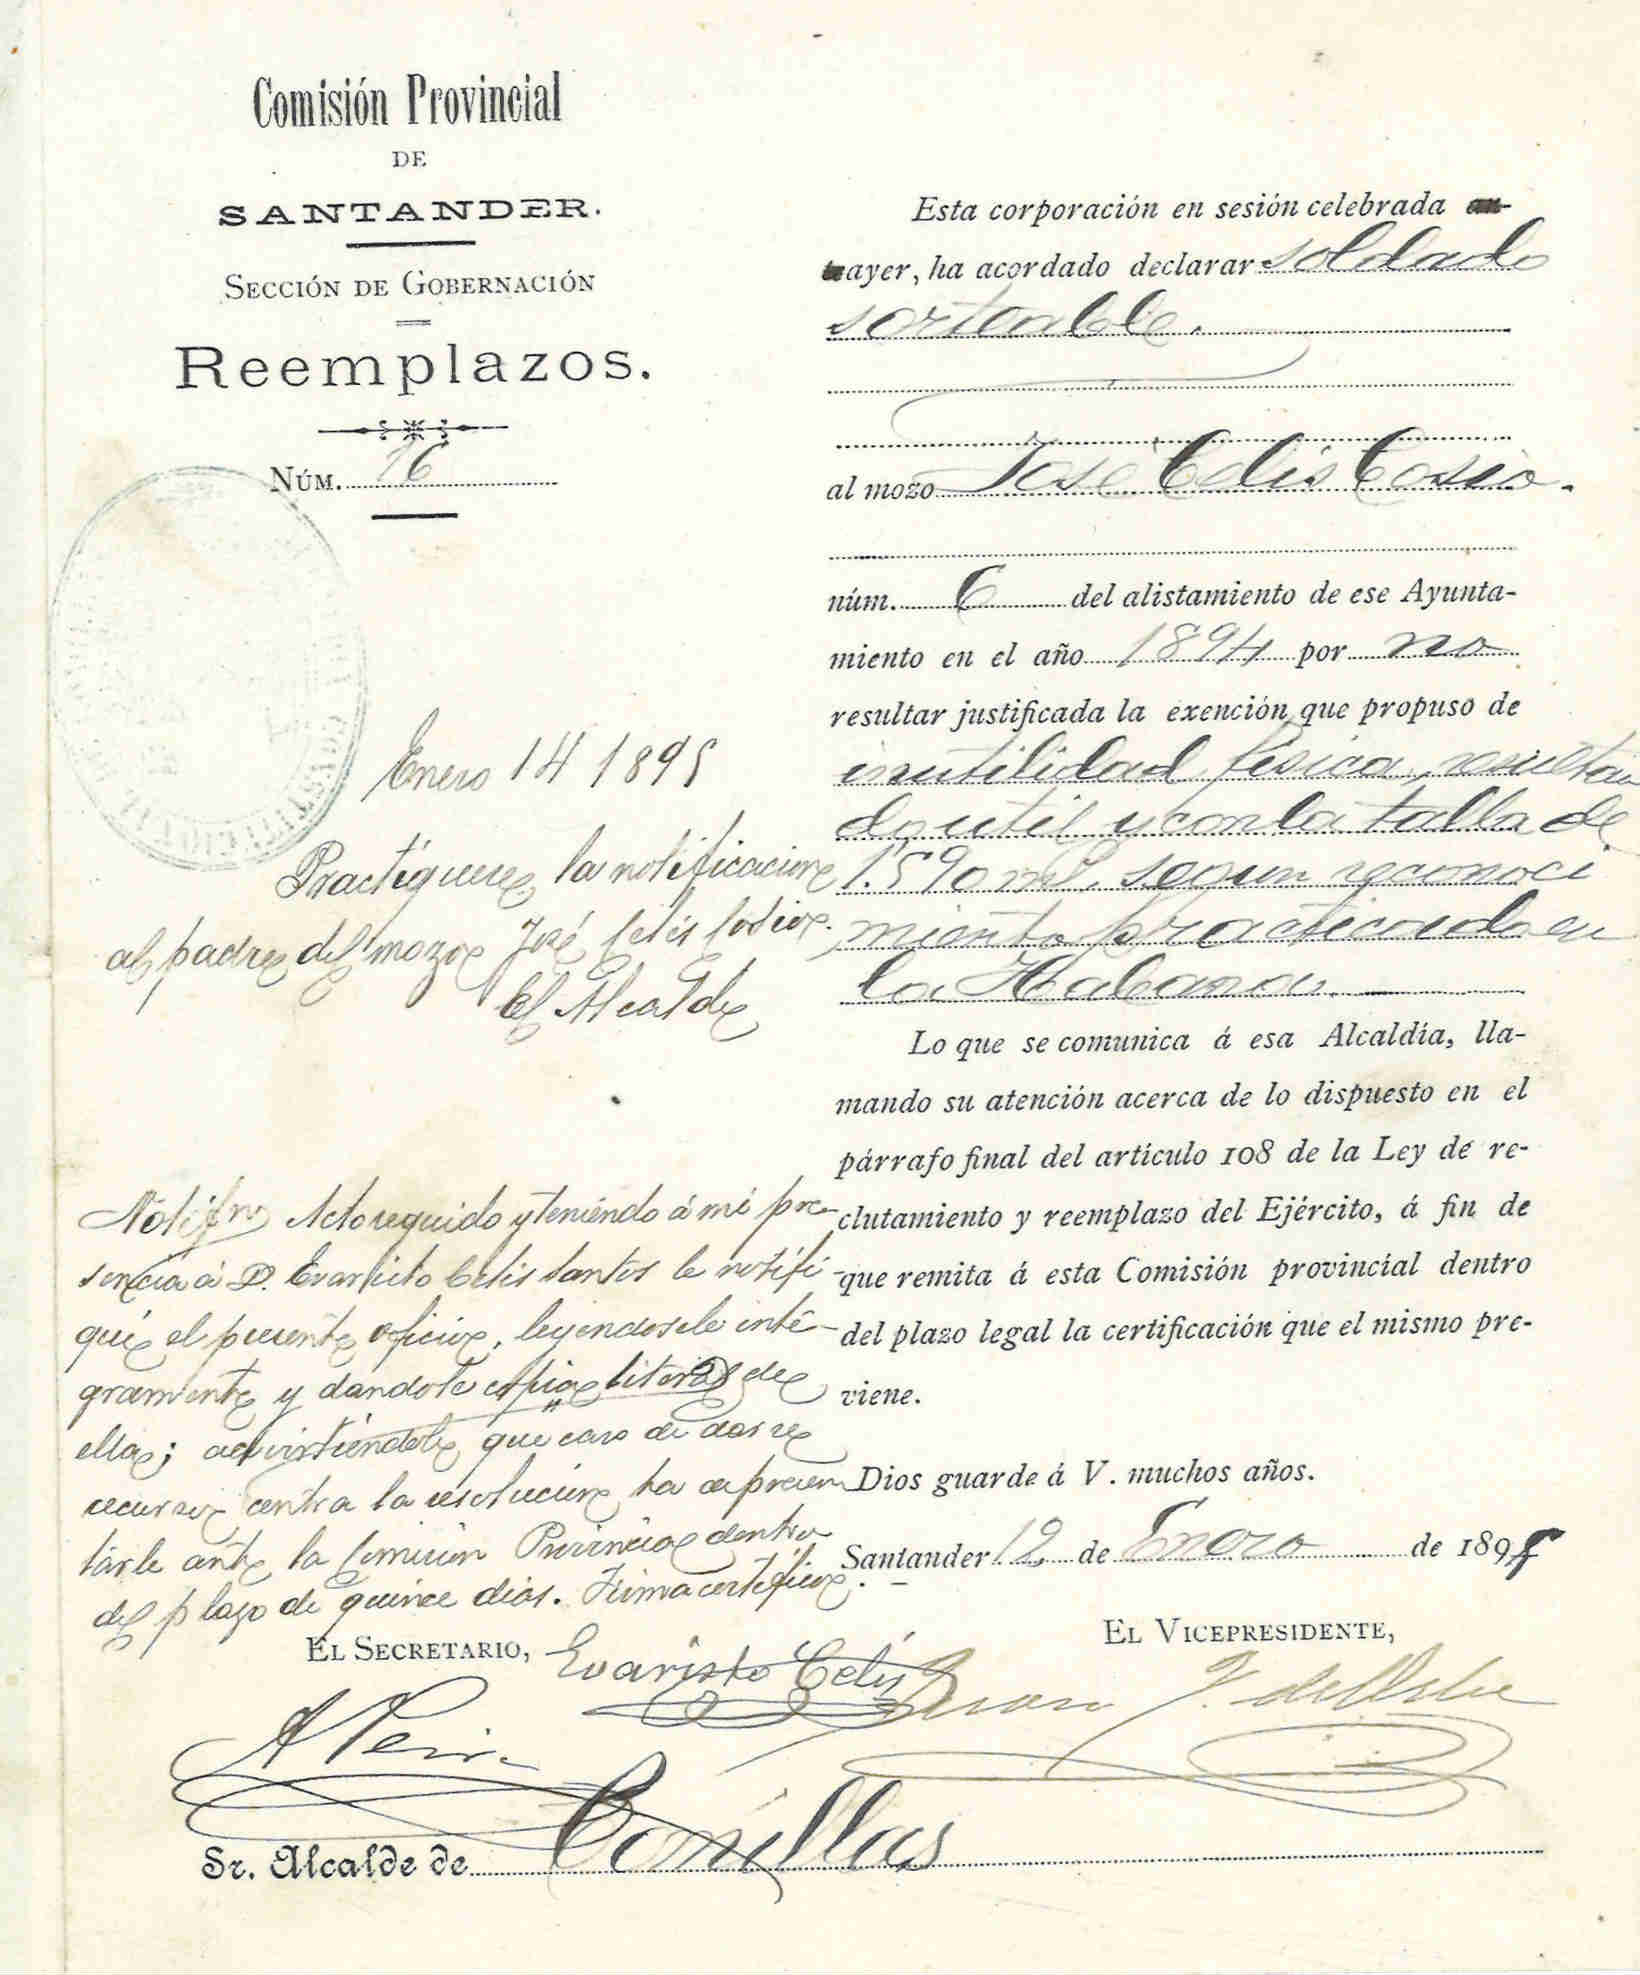 Comisión Provincial
DE
SANTANDER.
SECCIÓN DE GOBERNACIÓN
Reemplazos.
NÚM. 16
Esta corporación en sesión celebrada an-
teayer, ha acordado declarar soldado
sorteable.
al mozo José Celis Cosio.
núm. 6 del alistamiento de ese Ayunta-
miento en el año 1894 por no
resultar justificada la exención que propuso de
inutilidad fisica, resultan
do util y con la talla de
1.590 mil. segun reconoci
miento practicado en
la Habana.
Lo que se comunica á esa Alcaldía, lla-
mando su atención acerca de lo dispuesto en el
párrafo final del artículo 108 de la Ley de re-
clutamiento y reemplazo del Ejército, á fin de
que remita á esta Comisión provincial dentro
del plazo legal la certificación que el mismo pre-
viene.
Dios guarde á V. muchos años.
Santander 12 de Enero de 1895
EL VICEPRESIDENTE,
Enero 14 1895
Practíquese la notificacion
al padre del mozo José Celis Cosio.
El Alcalde
Notifn Acto seguido y teniendo á mi pre-
sencia á D. Evaristo Celis Santos le notifi-
qué el presente oficio, leyendosele inte-
gramente y dandole copia literal de
ella; advirtiendole que caso de
recurso contra la resolucion ha de presen
tarle ante la Comision Provincial dentro
del plazo de quince dias. Firma certifico.
EL SECRETARIO,
Evaristo Celis
Sr. Alcalde de Comillas